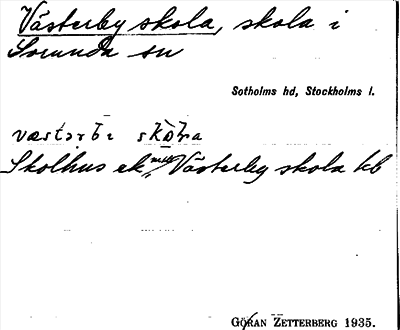 Västerby skola, skola i
Sorunda sn
Sotholms hd, Stockholms l.
væstərbı skòla
Skolhus ek Västerby skola kb
GÖRAN ZETTERBERG 1935.